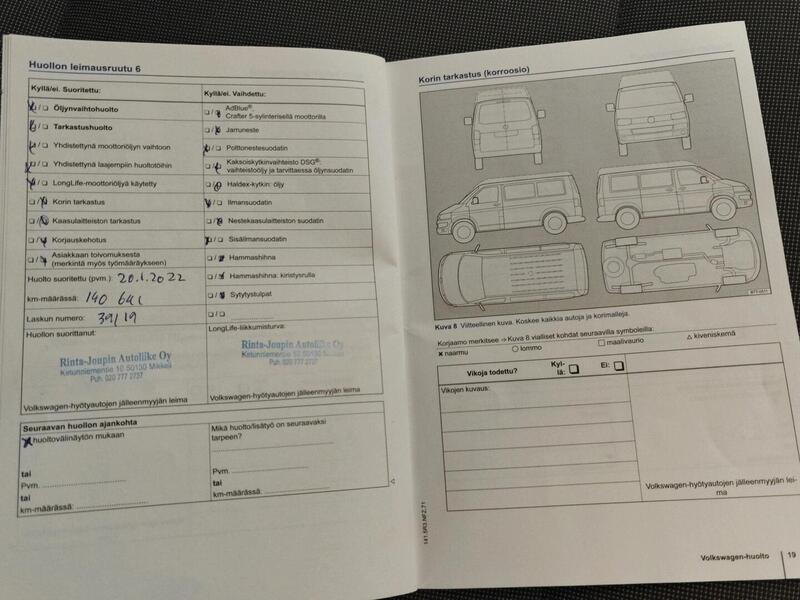 Huollon leimausruutu 6
Kyllä/ei. Suoritettu:
Öljynvaihtohuolto
Tarkastushuolto
Yhdistettynä moottoriöljyn vaihtoon
Yhdistettynä laajempiin huoltotöihin
LongLife-moottoriöljyä käytetty
Korin tarkastus
Kaasulaitteiston tarkastus
Korjauskehotus
Asiakkaan toivomuksesta
(merkintä myös työmääräykseen)
Huolto suoritettu (pvm.): 20.1.2022
km-määrässä: 140
Laskun numero: 39/19
Huollon suorittanut:
Rinta-Joupin Autoliike Oy
Ketunniementie 10 50130 Mikkeli
Puh. 020 777 2737
Volkswagen-hyötyautojen jälleenmyyjän leima
Kyllä/ei. Vaihdettu:
AdBlue®:
Crafter 5-sylinterisellä moottorilla
Jarruneste
Polttonestesuodatin
Kaksoiskytkinvaihteisto DSG®:
vaihteistoöljy ja tarvittaessa öljynsuodatin
Haldex-kytkin: öljy
Ilmansuodatin
Nestekaasulaitteiston suodatin
Sisäilmansuodatin
Hammashihna
Hammashihna: kiristysrulla
Sytytystulpat
LongLife-liikkumisturva:
Rinta-Joupin Autoliike Oy
Ketunniementie 10 50130 Mikkeli
Puh. 020 777 2737
Volkswagen-hyötyautojen jälleenmyyjän leima
Seuraavan huollon ajankohta
huoltovälinäytön mukaan
tai
Pvm.
tai
km-määrässä:
Mikä huolto/lisätyö on seuraavaksi
tarpeen?
Pvm.
tai
km-määrässä:
Korin tarkastus (korroosio)
Kuva 8 Viitteellinen kuva. Koskee kaikkia autoja ja korimalleja.
Korjaamo merkitsee ⇒ Kuva 8 vialliset kohdat seuraavilla symboleilla:
× naarmu ○ lommo □ maalivaurio △ kiveniskemä
Vikoja todettu? Kyl-
lä: Ei:
Vikojen kuvaus:
Volkswagen-hyötyautojen jälleenmyyjän lei-
ma
141.5R3.NFZ.71
Volkswagen-huolto 19